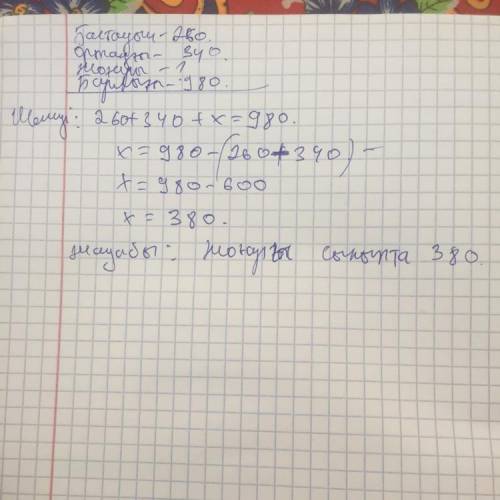 Бастауыш - 260.
Ортаңғы - 340.
Жоғарғы - ?
Барлығы - 980.
Шешуі: 260+340+x=980.
x=980-(260+340)-
x=980-600
x=380.
жауабы: жоғарғы сыныпта 380.